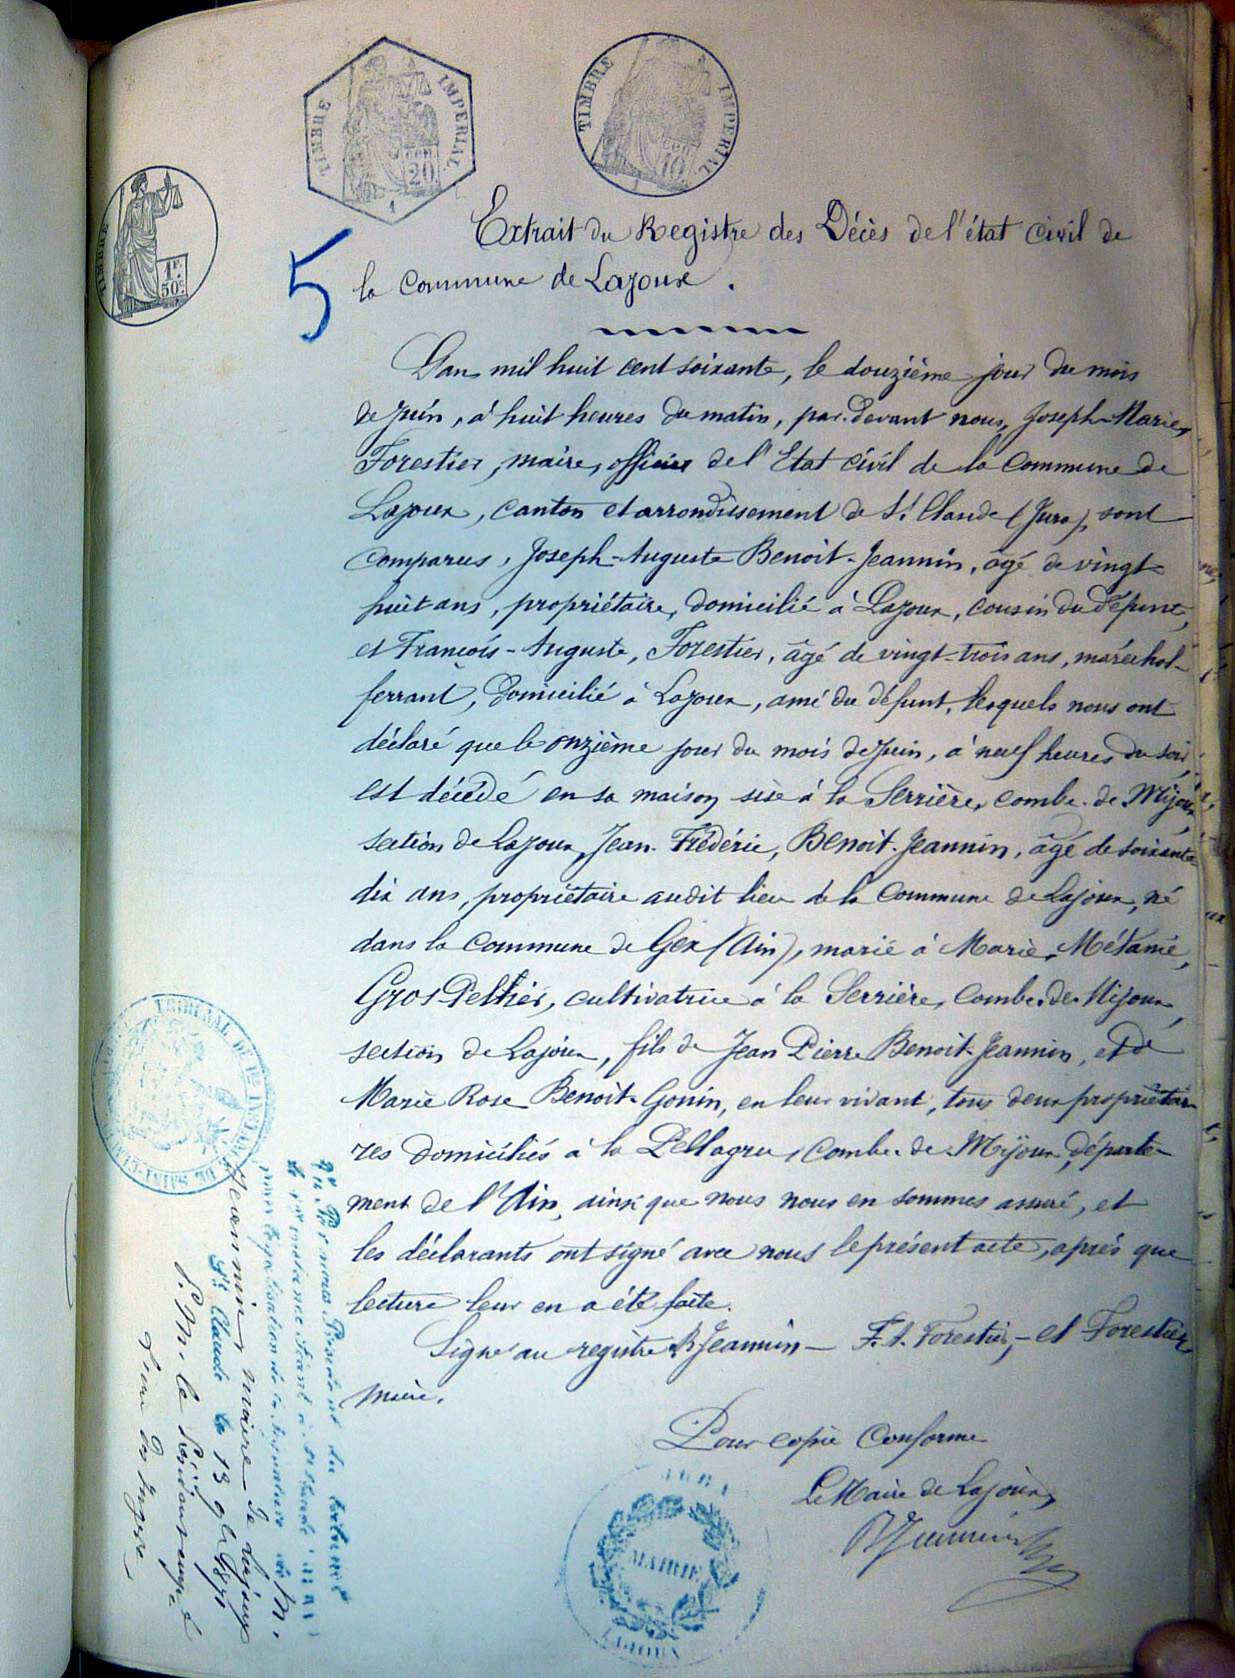 TIMBRE IMPERIAL
CEN 20.
1
TIMBRE IMPERIAL
CEN 10.
1
TIMBRE
1F. 50c.
5
Extrait du Registre des Décès de l'état civil de
la Commune de Lajoux.
L'an mil huit cent soixante, le douzième jour du mois
de juin, à huit heures du matin, par-devant nous, Joseph-Marie,
Forestier, maire, officier de l'Etat civil de la Commune de
Lajoux, canton et arrondissement de St Claude (Jura), sont
comparus, Joseph-Auguste Benoit-Jeannin, âgé de vingt-
huit ans, propriétaire, domicilié à Lajoux, cousin du défunt,
et François-Auguste, Forestier, âgé de vingt-trois ans, maréchal-
ferrant, domicilié à Lajoux, ami du défunt, lesquels nous ont
déclaré que le onzième jour du mois de juin, à neuf heures du soir
est décédé en sa maison sise à la Serrière, combe-de-Mijoux
section de Lajoux, Jean-Frédéric, Benoit-Jeannin, âgé de soixante
dix ans, propriétaire audit lieu de la Commune de Lajoux, né
dans la Commune de Gex (Ain), marié à Marie-Mélanie,
Gros-Pellier, cultivatrice à la Serrière, Combe-de-Mijoux,
section de Lajoux, fils de Jean Pierre Benoit-Jeannin, et de
Marie Rose Benoit-Gonin, en leur vivant, tous deux propriétai-
res domiciliés à la Pellagru, combe-de-Mijoux, départe-
ment de l'Ain, ainsi que nous nous en sommes assuré, et
les déclarants ont signé avec nous le présent acte, après que
lecture leur en a été faite.
Signé au registre B Jeannin — F. A. Forestier, — et Forestier
maire.
Pour copie Conforme
Le Maire de Lajoux
BJeannin
JURA
MAIRIE
LAJOUX
TRIBUNAL DE 1re INSTANCE
DE SAINT-CLAUDE
Vu Par nous Président du tribunal
de 1re instance séant à St Claude
pour légalisation de la signature de M.
Jeannin, maire de Lajoux
St Claude le 13
P. M. le Président empêché